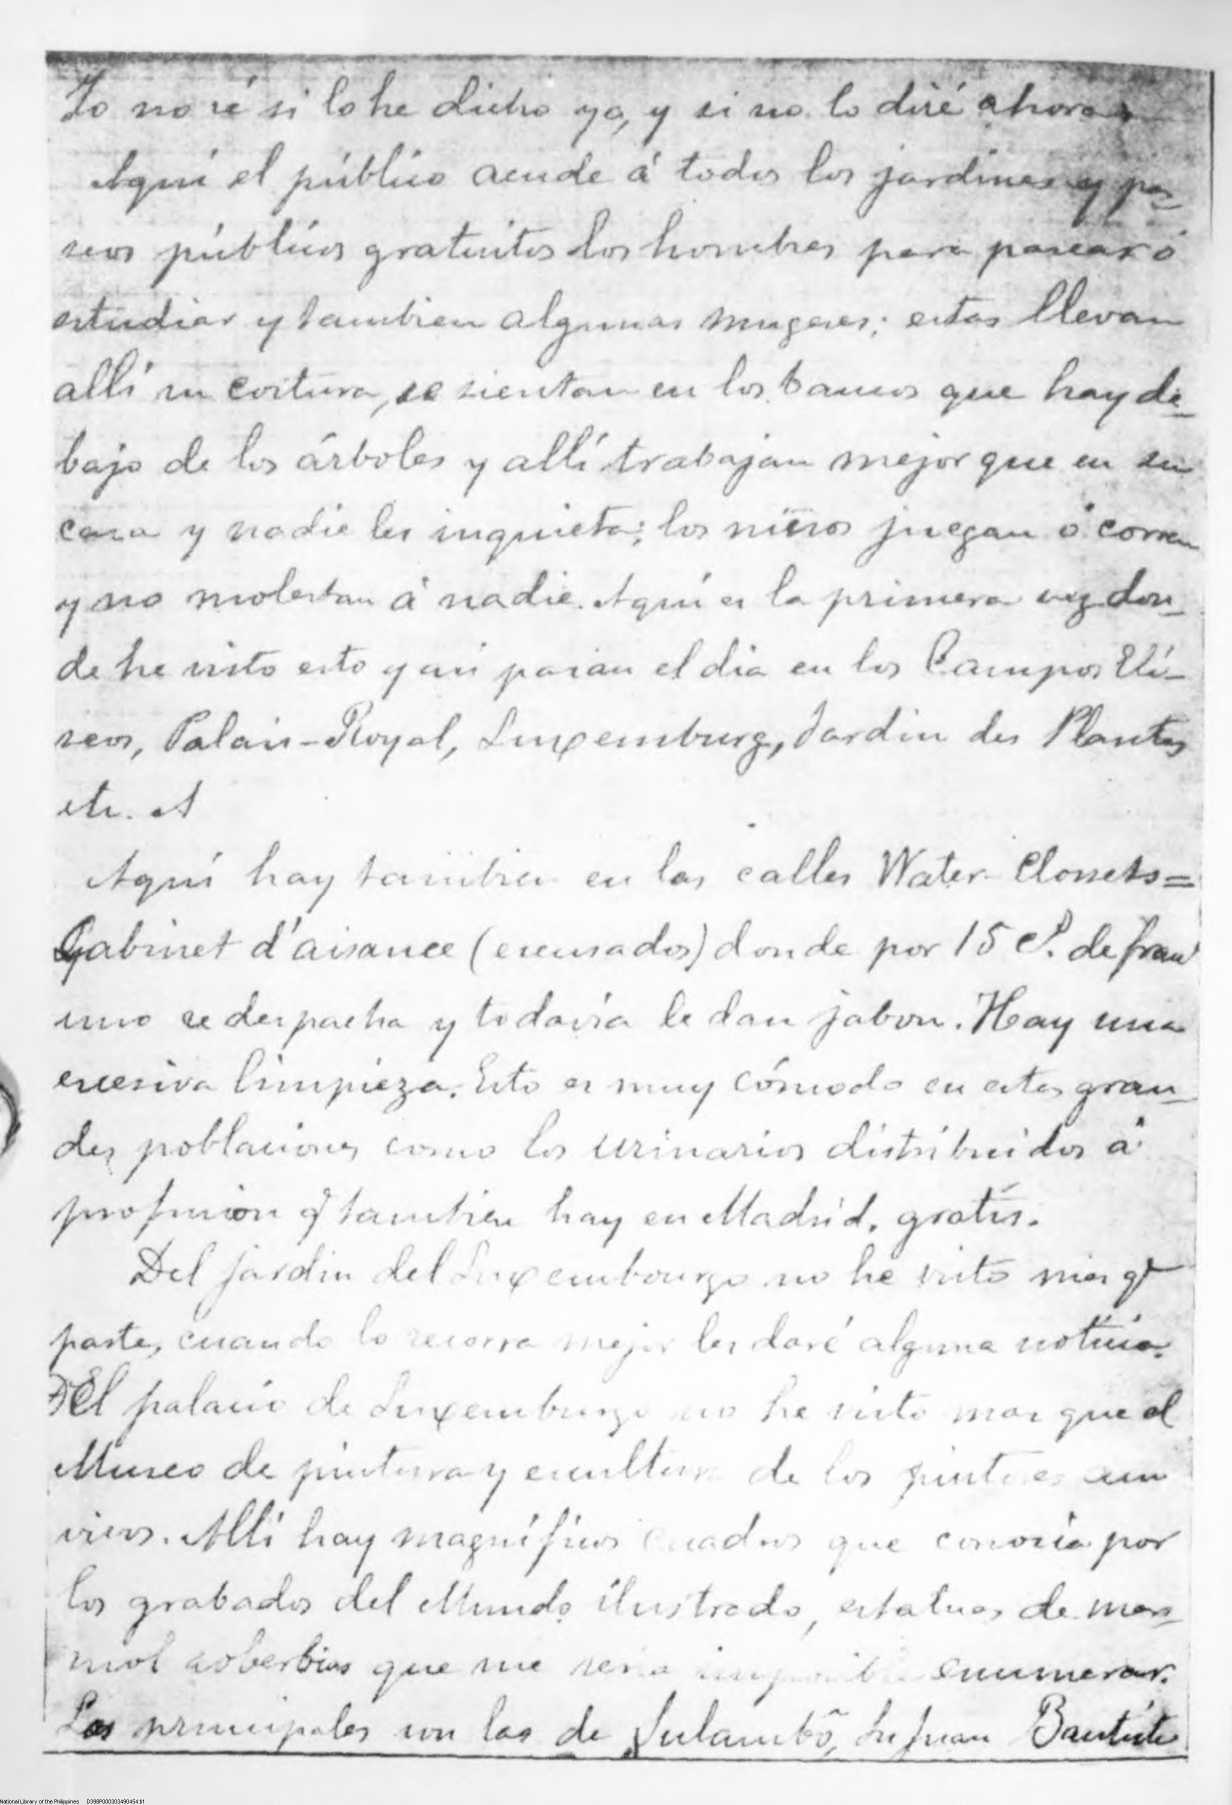 Yo no sé si lo he dicho ya, y si no lo diré ahora
Aquí el público acude á todos los jardines y pa-
seos públicos gratuitos los hombres para pasear ó
estudiar y tambien algunas mugeres; estas llevan
allí su costura, se sientan en los bancos que hay de-
bajo de los árboles y allí trabajan mejor que en su
casa y nadie les inquieta; los niños juegan ó corren
y no molestan á nadie. Aquí es la primera vez don-
de he visto esto y asi pasan el dia en los Campos Elí-
seos, Palais-Royal, Luxemburg, Jardin des Plantes
etc. A
Aquí hay tambien en las calles Water-Clossets=
Gabinet d'aisance (escusados) donde por 15 c. de franc
uno se despacha y todavía le dan jabon. Hay una
excesiva limpieza. Esto es muy cómodo en estas gran-
des poblaciones como los urinarios distribuidos á
profusion q tambien hay en Madrid, gratis.
Del jardin del Luxembourgo no he visto mas q
parte, cuando lo recorra mejor les daré alguna noticia.
Del palacio de Luxemburgo no he visto mas que el
Museo de pintura y escultura de los pintores aun
vivos. Allí hay magníficos cuadros que conocía por
los grabados del Mundo ilustrado, estatuas de mar-
mol soberbias que me seria imposible enumerar.
Las principales son las de Juan Bautista
National Library of the Philippines